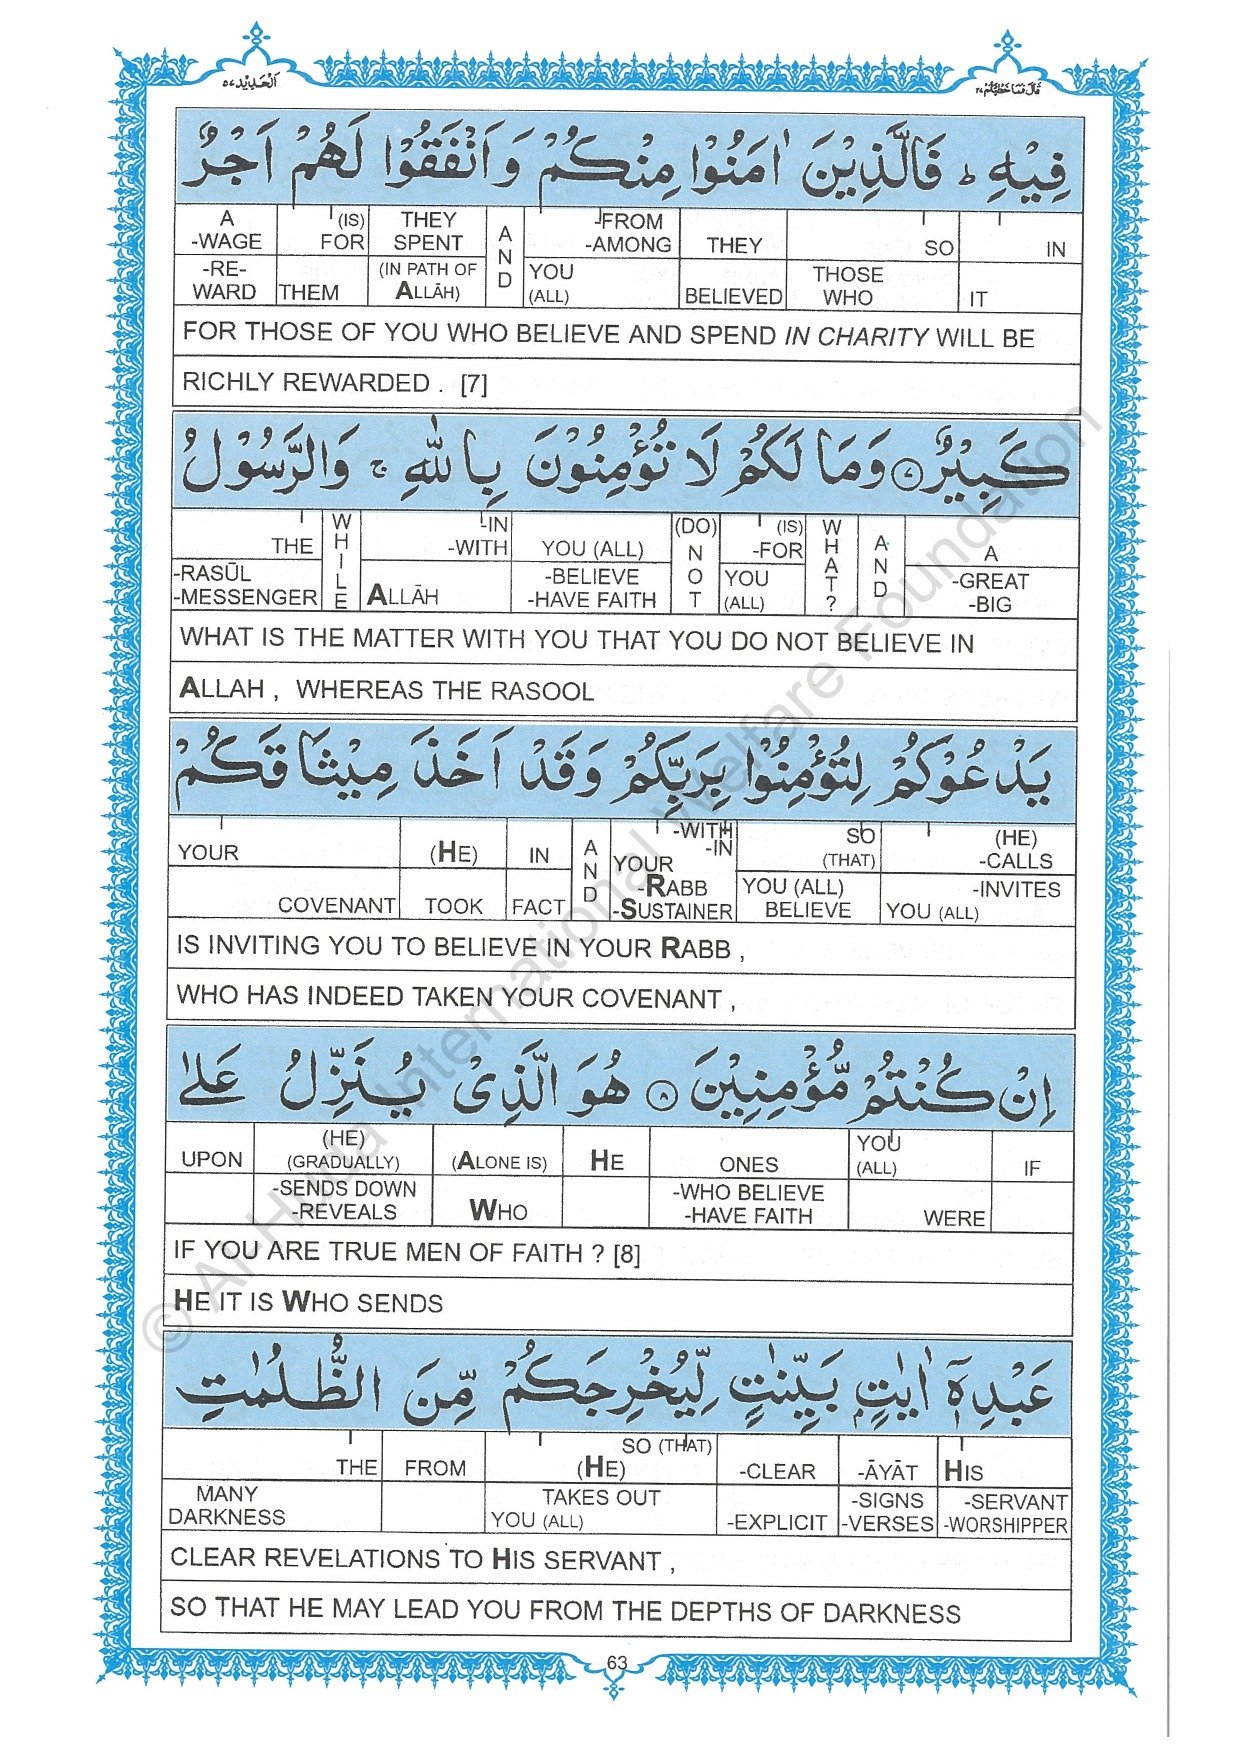 اَلْحَدِيْد ٥٧
قَالَ فَمَا خَطْبُكُمْ ٢٧
فِيْهِ ؕ فَالَّذِيْنَ اٰمَنُوْا مِنْكُمْ وَاَنْفَقُوْا لَهُمْ اَجْرٌ
A (IS) THEY AND -FROM
-WAGE FOR SPENT -AMONG THEY SO IN
-RE- (IN PATH OF YOU THOSE
WARD THEM ALLĀH) (ALL) BELIEVED WHO IT
FOR THOSE OF YOU WHO BELIEVE AND SPEND IN CHARITY WILL BE
RICHLY REWARDED . [7]
كَبِيْرٌ ٧ وَمَا لَكُمْ لَا تُؤْمِنُوْنَ بِاللّٰهِ ۚ وَالرَّسُوْلُ
WHILE -IN (DO) NOT (IS) WHAT? AND
THE -WITH YOU (ALL) -FOR A
-RASŪL -BELIEVE YOU -GREAT
-MESSENGER ALLĀH -HAVE FAITH (ALL) -BIG
WHAT IS THE MATTER WITH YOU THAT YOU DO NOT BELIEVE IN
ALLAH , WHEREAS THE RASOOL
يَدْعُوْكُمْ لِتُؤْمِنُوْا بِرَبِّكُمْ وَقَدْ اَخَذَ مِيْثَاقَكُمْ
AND -WITH SO (HE)
YOUR (HE) IN -IN (THAT) -CALLS
YOUR -RABB YOU (ALL) -INVITES
COVENANT TOOK FACT -SUSTAINER BELIEVE YOU (ALL)
IS INVITING YOU TO BELIEVE IN YOUR RABB ,
WHO HAS INDEED TAKEN YOUR COVENANT ,
اِنْ كُنْتُمْ مُّؤْمِنِيْنَ ٨ هُوَ الَّذِيْ يُنَزِّلُ عَلٰى
(HE) YOU
UPON (GRADUALLY) (ALONE IS) HE ONES (ALL) IF
-SENDS DOWN -WHO BELIEVE
-REVEALS WHO -HAVE FAITH WERE
IF YOU ARE TRUE MEN OF FAITH ? [8]
HE IT IS WHO SENDS
عَبْدِهٖۤ اٰيٰتٍۭ بَيِّنٰتٍ لِّيُخْرِجَكُمْ مِّنَ الظُّلُمٰتِ
SO (THAT)
THE FROM (HE) -CLEAR -ĀYĀT HIS
MANY TAKES OUT -SIGNS -SERVANT
DARKNESS YOU (ALL) -EXPLICIT -VERSES -WORSHIPPER
CLEAR REVELATIONS TO HIS SERVANT ,
SO THAT HE MAY LEAD YOU FROM THE DEPTHS OF DARKNESS
63
© Al Huda International Welfare Foundation